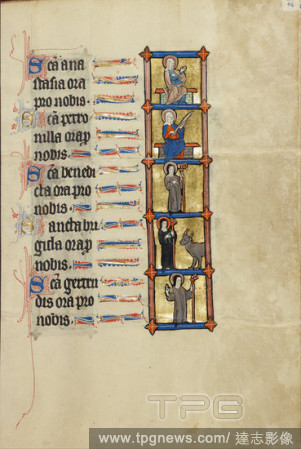 Sca ana
stasia ora
pro nobis.
Sca petro
nilla orap
nobis.
Sca benedi
cta ora pro
nobis.
Sancta bri
gida orap
nobis.
Sca gertru
dis ora pro
nobis.
TPG
www.tpgnews.com / 達志影像